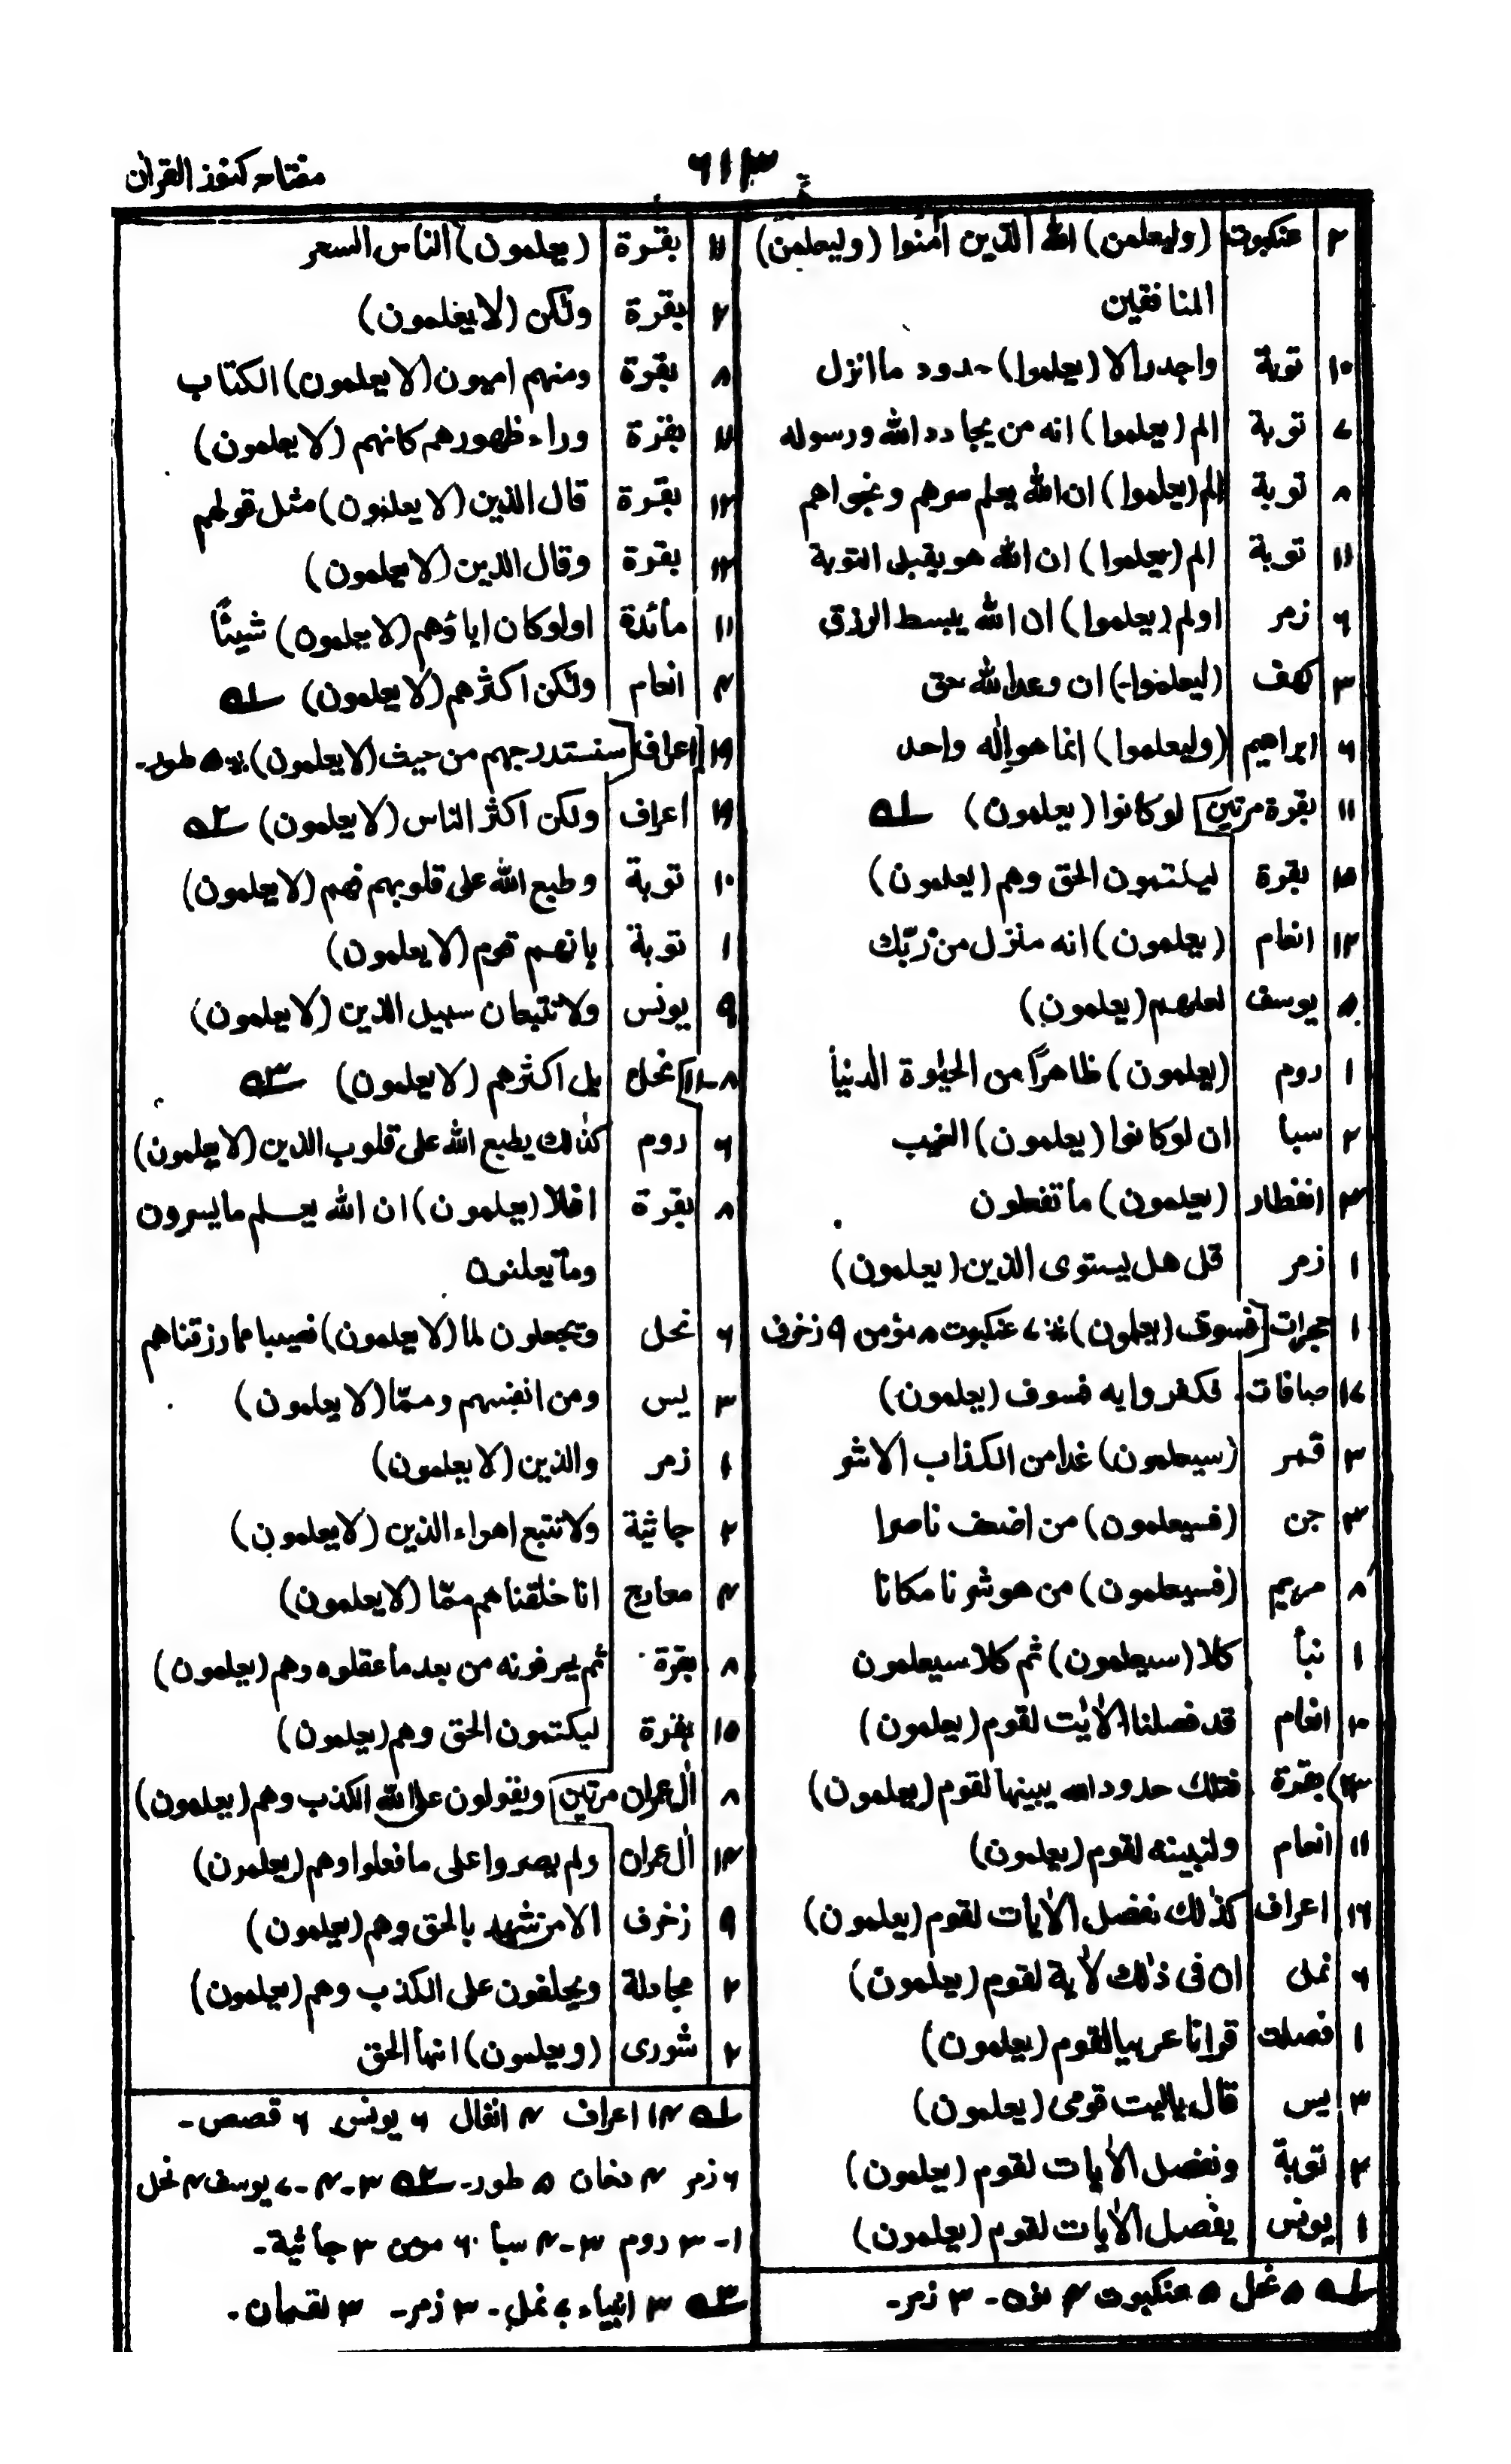 مفتاح کنوز القرآن
۶۱۳
۲ عنکبوت (ولیعلمن) الله الذین اٰمنوا (ولیعلمن)
المنافقین
۱۰ توبة واجدر الا (یعلموا) حدود ما انزل
۷ توبة الم (یعلموا) انه من یحادد الله ورسوله
۸ توبة الم (یعلموا) ان الله یعلم سرهم ونجواهم
۱۱ توبة الم (یعلموا) ان الله هو یقبل التوبة
۶ زمر اولم (یعلموا) ان الله یبسط الرزق
۳ کهف (لیعلموا) ان وعد الله حق
۶ ابراهیم (ولیعلموا) انما هو اِلٰه واحد
۱۱ بقرة مرتین لو کانوا (یعلمون) ۱ھ
۱۵ بقرة لیکتمون الحق وهم (یعلمون)
۱۲ انعام (یعلمون) انه منزل من رّبّك
۵ یوسف لعلهم (یعلمون)
۱ روم (یعلمون) ظاهرًا من الحیٰوة الدنیا
۲ سبا ان لو کانوا (یعلمون) الغیب
۳ انفطار (یعلمون) ما تفعلون
۱ زمر قل هل یستوی الذین (یعلمون)
۱ حجرات فسوف (یعلمون) ۷ عنکبوت ۸ مؤمن ۹ زخرف
۱۷ صافات فکفروا به فسوف (یعلمون)
۳ قمر (سیعلمون) غدا من الکذاب الاشر
۳ جن (فسیعلمون) من اضعف ناصرا
۸ مریم (فسیعلمون) من هو شر نا مکانا
۱ نبأ کلا (سیعلمون) ثم کلا سیعلمون
۱۰ انعام قد فصلنا الاٰیٰت لقوم (یعلمون)
بقرة فتلك حدود الله یبینها لقوم (یعلمون)
۱۱ انعام ولنبینه لقوم (یعلمون)
۱۶ اعراف کذٰلك نفصل الاٰیات لقوم (یعلمون)
۶ نمل ان فی ذٰلك لاٰیة لقوم (یعلمون)
۱ فصلت قراٰنا عربیا لقوم (یعلمون)
۳ یس قال یالیت قومی (یعلمون)
۲ توبة ونفصل الاٰیات لقوم (یعلمون)
۱ یونس یفصل الاٰیات لقوم (یعلمون)
۱ھ ۵ نحل ۵ عنکبوت ۲ نون۔ ۳ زمر۔
۱۱ بقرة (یعلمون) الناس السحر
۲ بقرة ولٰکن (لا یعلمون)
۸ بقرة ومنهم امیون (لا یعلمون) الکتاب
۱۱ بقرة وراء ظهورهم کانهم (لا یعلمون)
۱۲ بقرة قال الذین (لا یعلمون) مثل قولهم
۱۲ بقرة وقال الذین (لا یعلمون)
۱۱ مائدة اولو کان اباؤهم (لا یعلمون) شیئًا
۴ انعام ولٰکن اکثرهم (لا یعلمون) ۱ھ
۱۹ اعراف سنستدرجهم من حیث (لا یعلمون)
۱۹ اعراف ولکن اکثر الناس (لا یعلمون) ۲ھ
۱۰ توبة وطبع الله علی قلوبهم فهم (لا یعلمون)
۱ توبة بانهم قوم (لا یعلمون)
۹ یونس ولا تتبعان سبیل الذین (لا یعلمون)
۸-۱۱ نحل بل اکثرهم (لا یعلمون) ۳ھ
۶ روم کذٰلك یطبع الله علی قلوب الذین (لا یعلمون)
۸ بقرة افلا (یعلمون) ان الله یعلم ما یسرون
وما یعلنون
۶ نحل ویجعلون لما (لا یعلمون) نصیبا مما رزقناهم
۳ یس ومن انفسهم وممّا (لا یعلمون)
۱ زمر والذین (لا یعلمون)
۲ جاثیة ولا تتبع اهواء الذین (لا یعلمون)
۲ معارج انا خلقناهم ممّا (لا یعلمون)
۸ بقرة ثم یحرفونه من بعد ما عقلوه وهم (یعلمون)
۱۵ بقرة لیکتمون الحق وهم (یعلمون)
۸ اٰل عمران مرتین ویقولون علی الله الکذب وهم (یعلمون)
۱۴ اٰل عمران ولم یصروا علی ما فعلوا وهم (یعلمون)
۹ زخرف الا من شهد بالحق وهم (یعلمون)
۲ مجادلة ویحلفون علی الکذب وهم (یعلمون)
۲ شوری (ویعلمون) انها الحق
۱ھ ۱۴ اعراف ۴ انفال ۶ یونس ۶ قصص۔
۶ زمر ۲ دخان ۵ طور۔ ۲ھ ۳-۴-۷ یوسف ۴ نحل
۱-۳ روم ۳-۴ سبا ۶ مومن ۳ جاثیة۔
۳ھ ۳ انبیاء ۷ نمل۔ ۳ زمر۔ ۳ لقمان۔